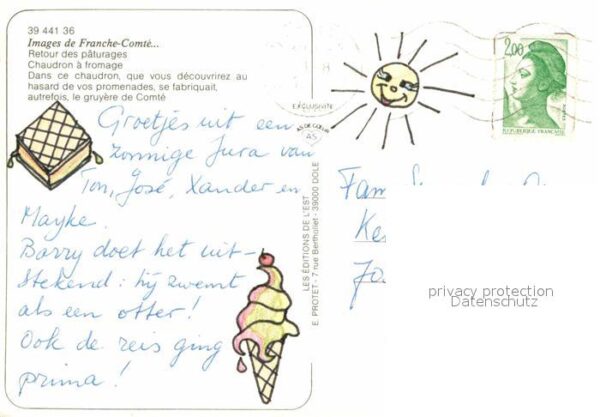 39 441 36
Images de Franche-Comté...
Retour des pâturages
Chaudron à fromage
Dans ce chaudron, que vous découvrirez au
hasard de vos promenades, se fabriquait,
autrefois, le gruyère de Comté
Groetjes uit een
zonnige Jura van
Ton, José, Xander en
Mayke.
Barry doet het uit-
stekend: hij zwemt
als een otter!
Ook de reis ging
prima!
LES ÉDITIONS DE L'EST
E. PROTET - 7 rue Berthollet - 39000 DOLE
EXCLUSIVITÉ
AS DE CŒUR
AS
2,00
REPUBLIQUE FRANÇAISE
Fam
Ke
privacy protection
Datenschutz